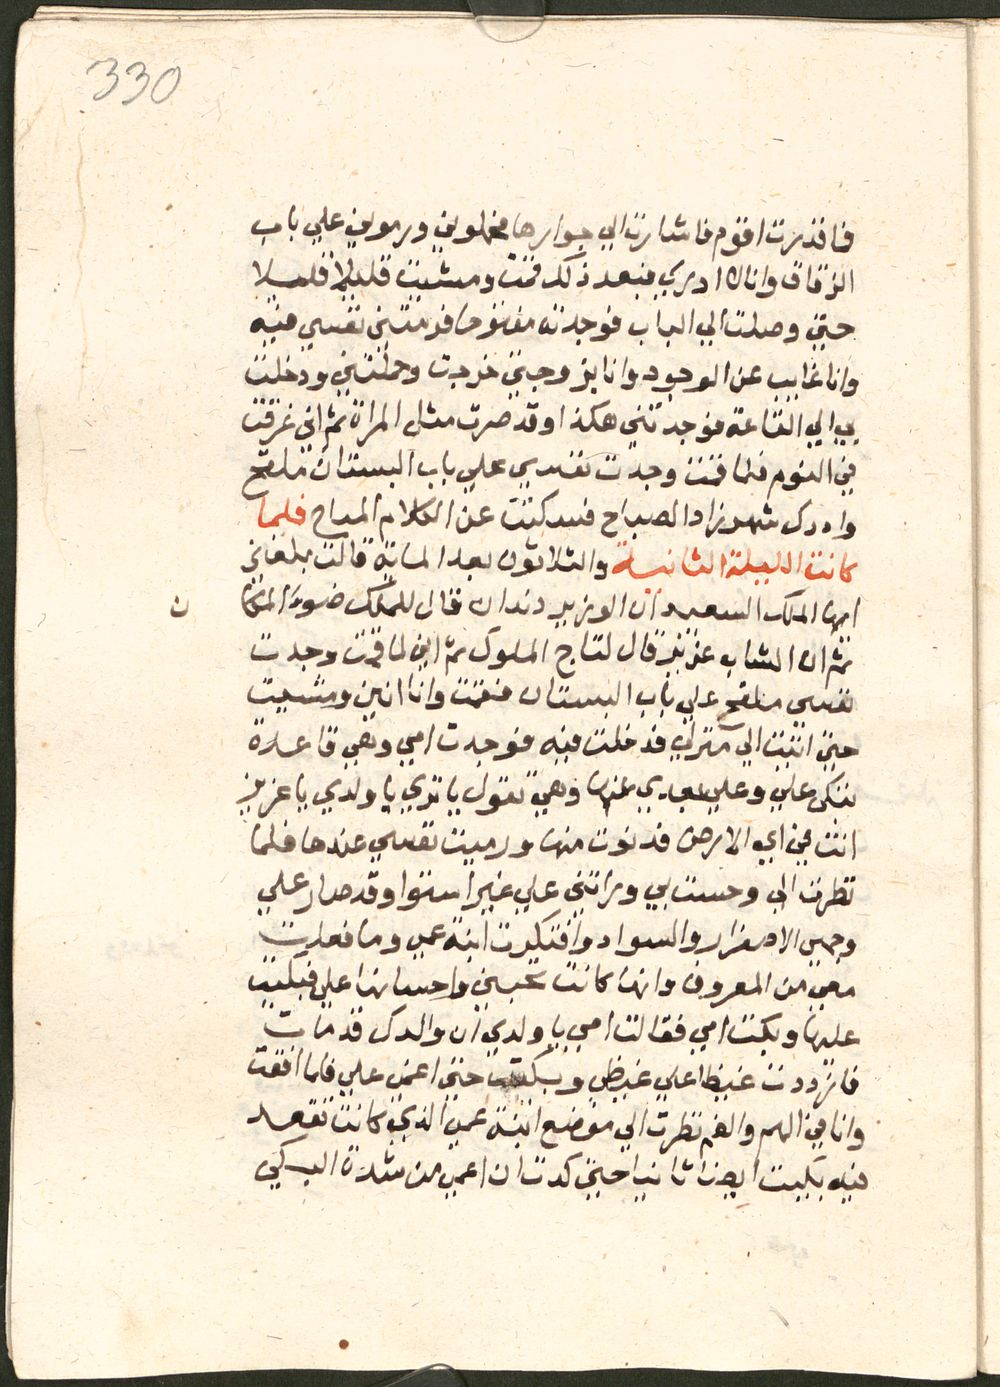 330
فاقدرت اقوم فاشارت الي جوارها فحملوني ورموني علي باب
الزقاق وانا لا ادري فبعد ذلك قمت ومشيت قليلا قليلا
حتي وصلت الي الباب فوجدته مفتوحا فرميت نفسي فيه
وانا غايب عن الوجود وانا بزوجتي خرجت وحملتني ودخلت
بي الي القاعة فوجدتني هكذا وقد صرت مثل المراة ثم اني غرقت
في النوم فلما قمت وجدت نفسي علي باب البستان ملقح
وادرك شهرزاد الصباح فسكتت عن الكلام المباح فلما
كانت الليلة الثانية والثلاثون بعد الماية قالت بلغني
ايها الملك السعيد ان الوزير دندان قال للملك ضوء المكا
ن
ثم ان الشاب عزيز قال لتاج الملوك ثم اني لما قمت وجدت
نفسي ملقح علي باب البستان فقمت وانا انين ومشيت
حتي اتيت الي منزلي فدخلت فيه فوجدت امي وهي قاعدة
تبكي علي وعلي بعدي عنها وهي تقول يا تري يا ولدي يا عزيز
انت في اي الارض فدنوت منها ورميت نفسي عندها فلما
نظرت الي وحست بي وراتني علي غير استوا وقد صار علي
وجهي الاصفرار والسواد وافتكرت ابنة عمي وما فعلت
معي من المعروف وانها كانت تحبني واحسانها علي فبكيت
عليها وبكت امي فقالت امي يا ولدي ان والدك قد مات
فازددت غيظا علي غيظي وبكيت حتي اغمي علي فلما افقت
وانا في الهم والغم نظرت الي موضع ابنة عمي الذي كانت تقعد
فيه بكيت ايضا ثانيا حتي كدت ان اعمي من شدة البكي